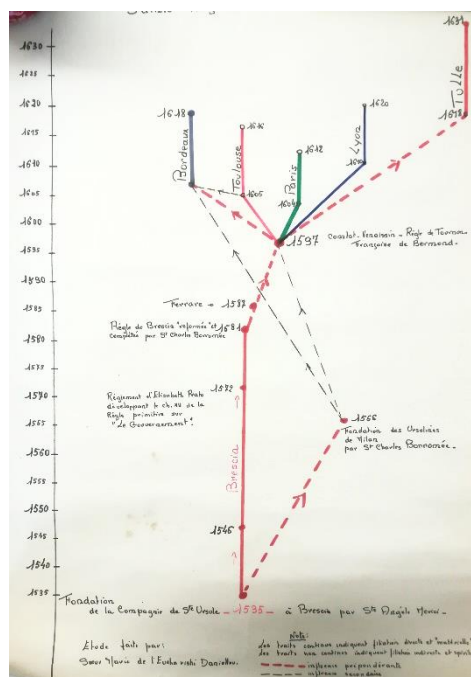 1631
1630
1625
1620
1615
1610
1605
1600
1595
1590
1585
1580
1575
1570
1565
1560
1555
1550
1545
1540
1535
Tulle
1618
1618
Bordeaux
1616
Toulouse
1605
1612
Paris
1604
1620
Lyon
1610
1597
Comtat-Venaissin - Règle de Tournon
Françoise de Bermond.
Ferrare - 1587
Règle de Brescia "réformée" et
complétée par St Charles Borromée
1581
1572
Règlement d'Elisabeth Prato
développant le ch. XI de la
Règle primitive sur
"Le Gouvernement".
1566
Fondation des Ursulines
de Milan
par St Charles Borromée
Brescia
1546
Fondation
de la Compagnie de Ste Ursule - 1535 - à Brescia par Ste Angèle Merici -
Etude faite par:
Sœur Marie de l'Eucharistie
note:
Les traits continus indiquent filiation directe et "matérielle"
Les traits non continus indiquent filiation indirecte et
influence prépondérante
influence secondaire